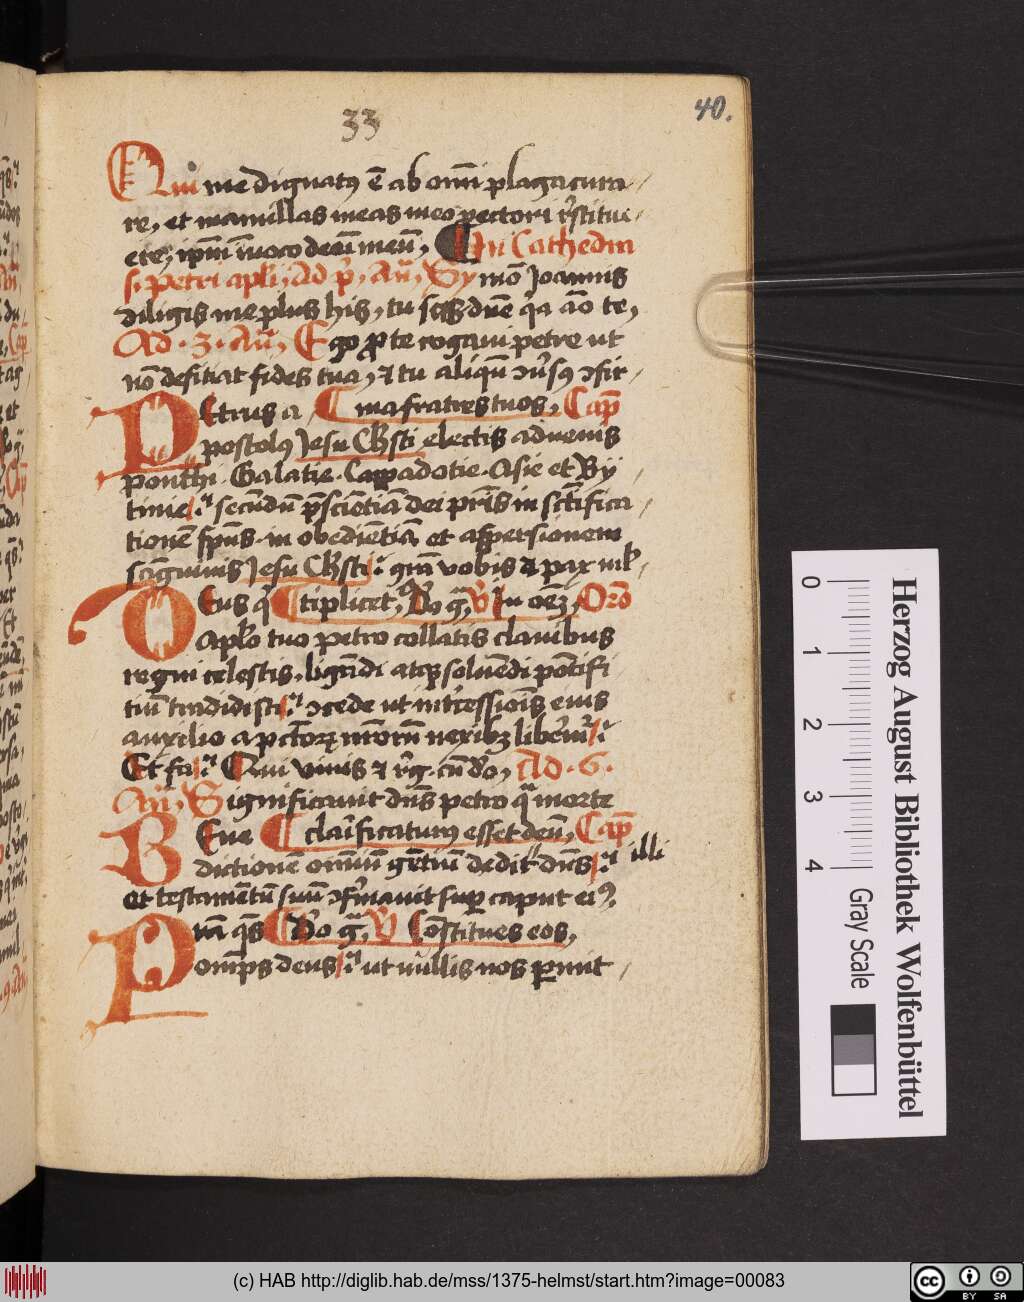 33
40.
Qui me dignatus ē ab omī plaga cura
re, et mamillas meas meo pectori r̄stitue
ere, ipm̄ īuoco deū meū, In Cathedra
s. Petri apli, Ad p̄, Añ, Symō Joannis
diligis me plus his, tu scis dn̄e q̇a aōo te,
Ad . 3 . Añ, Ego p te rogaui petre ut
nō defitiat fides tua, et tu aliqn̄ ꝯūsꝯ ꝯfir
ma fratres tuos, Cap̄
PEtrus a
postolꝯ Jesu Ch̄sti electis aduenis
ponthi . Galatie . Cappadotie . Asie et By
tinie. secūdū p̄sciētiā dei pr̄is in sctīfica
tionē sp̄us in obediētiā et aspersionem
sāguinis Jesu Ch̄sti. gr̄a vobis et pax
mltiplicet, Do gr̄, V̄ In oēz, Orō
DEus q̄
Aplo tuo petro collatis clauibus
regni celestis, ligādi atqꝫ soluēdi pōtifi
tiū tradidisti. ꝯcede ut int̄cessiōis eius
auxilio a pctorꝝ nr̄orū nexibꝫ liberm̄r.
Et fa. Qui viuis et r̄g. cū do, Ad . 6 .
Añ, Significauit dn̄s petro q̄ morte
clarificaturus esset deū, Cap̄
BEne
dictionē omniū gētiū dedit illi dn̄s.
et testamētū suū ꝯfirmauit super caput eiꝯ.
Do gr̄, V̄ Cōstitues eos,
Pur̄a qs̄
omps̄ deus. ut nullis nos permit
Herzog August Bibliothek Wolfenbüttel
0 1 2 3 4
Gray Scale
(c) HAB http://diglib.hab.de/mss/1375-helmst/start.htm?image=00083
cc BY SA